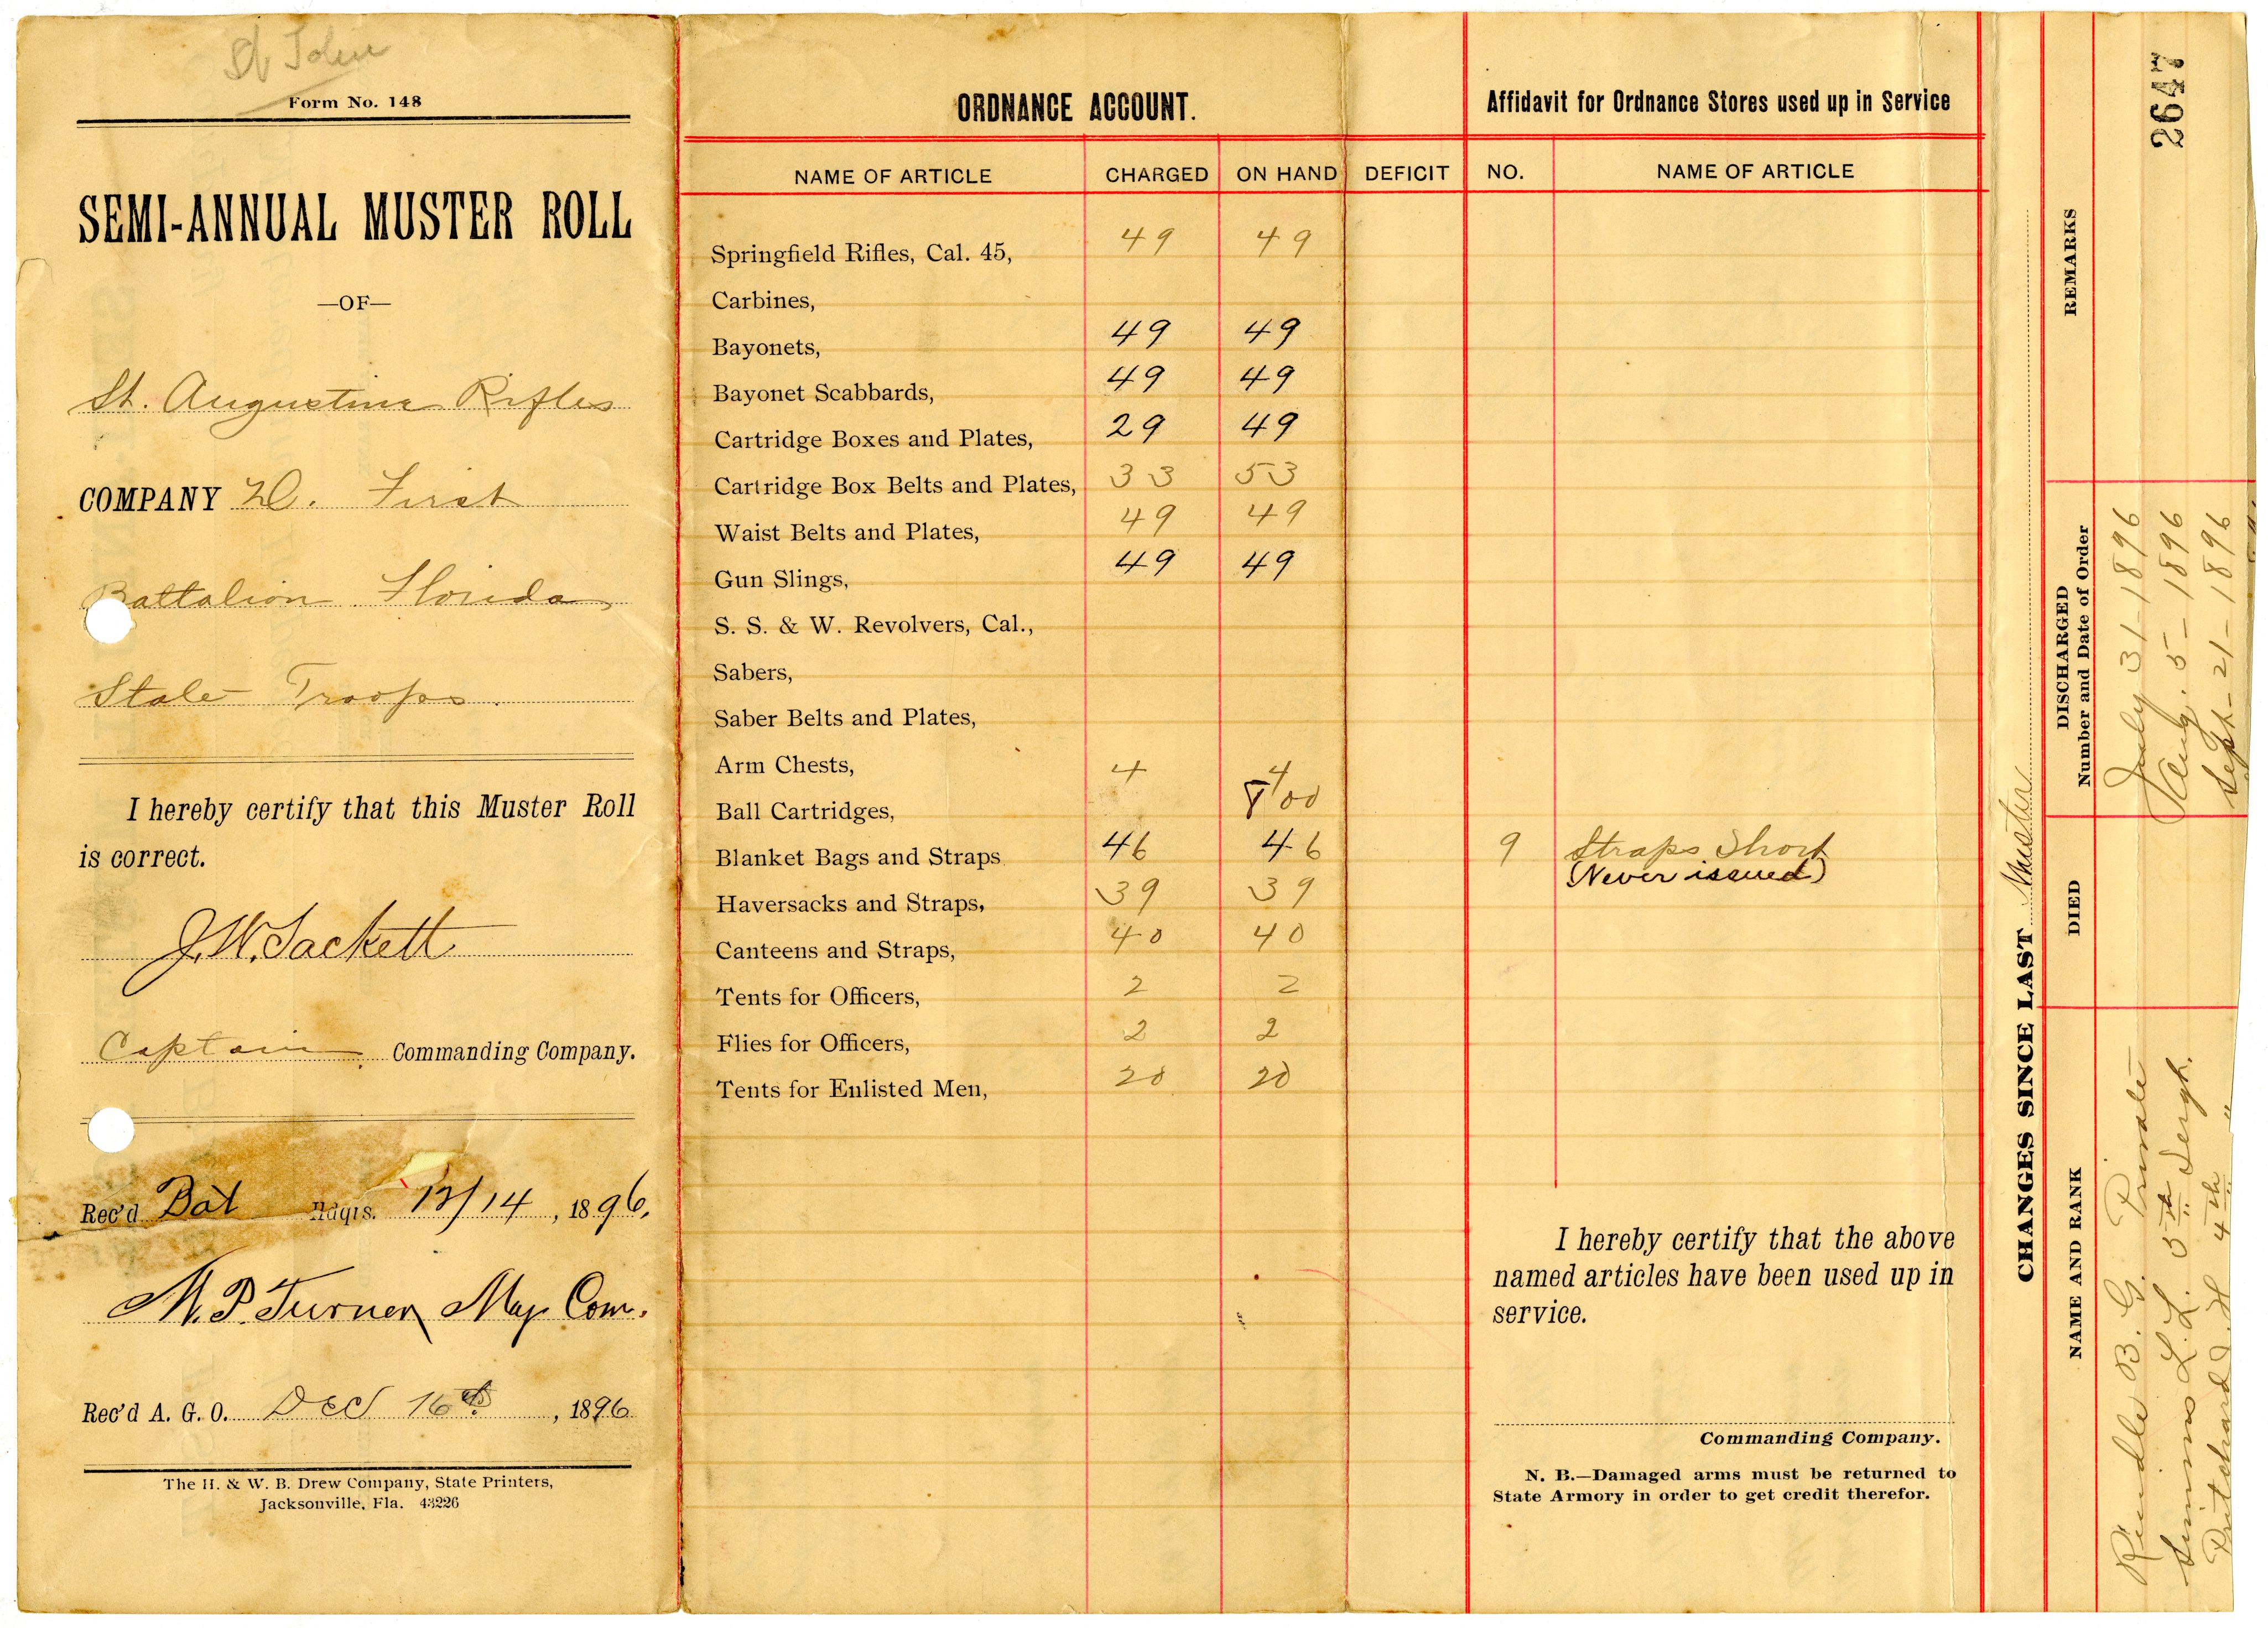 St John
Form No. 148
SEMI-ANNUAL MUSTER ROLL
—OF—
St. Augustine Rifles
COMPANY D. First
Battalion Florida
State Troops.
I hereby certify that this Muster Roll
is correct.
J. W. Sackett
Captain Commanding Company.
Rec'd Bat Hdqrs. 12/14, 1896.
M. P. Turner Maj Com.
Rec'd A. G. O. Dec 16th, 1896
The H. & W. B. Drew Company, State Printers,
Jacksonville, Fla. 43226
ORDNANCE ACCOUNT.
NAME OF ARTICLE CHARGED ON HAND DEFICIT
Springfield Rifles, Cal. 45, 49 49
Carbines,
Bayonets, 49 49
Bayonet Scabbards, 49 49
Cartridge Boxes and Plates, 29 49
Cartridge Box Belts and Plates, 33 53
Waist Belts and Plates, 49 49
Gun Slings, 49 49
S. S. & W. Revolvers, Cal.,
Sabers,
Saber Belts and Plates,
Arm Chests, 4 4
Ball Cartridges, 800
Blanket Bags and Straps 46 46
Haversacks and Straps, 39 39
Canteens and Straps, 40 40
Tents for Officers, 2 2
Flies for Officers, 2 2
Tents for Enlisted Men, 20 20
Affidavit for Ordnance Stores used up in Service
NO. NAME OF ARTICLE
9 Straps Short
(Never issued)
I hereby certify that the above
named articles have been used up in
service.
Commanding Company.
N. B.—Damaged arms must be returned to
State Armory in order to get credit therefor.
CHANGES SINCE LAST Muster
NAME AND RANK DIED DISCHARGED REMARKS
Number and Date of Order
B. G. Private July 31-1896
Simms L. L. 5th Sergt. Aug. 5-1896
Pritchard J. H 4th " Sept-21-1896
2647